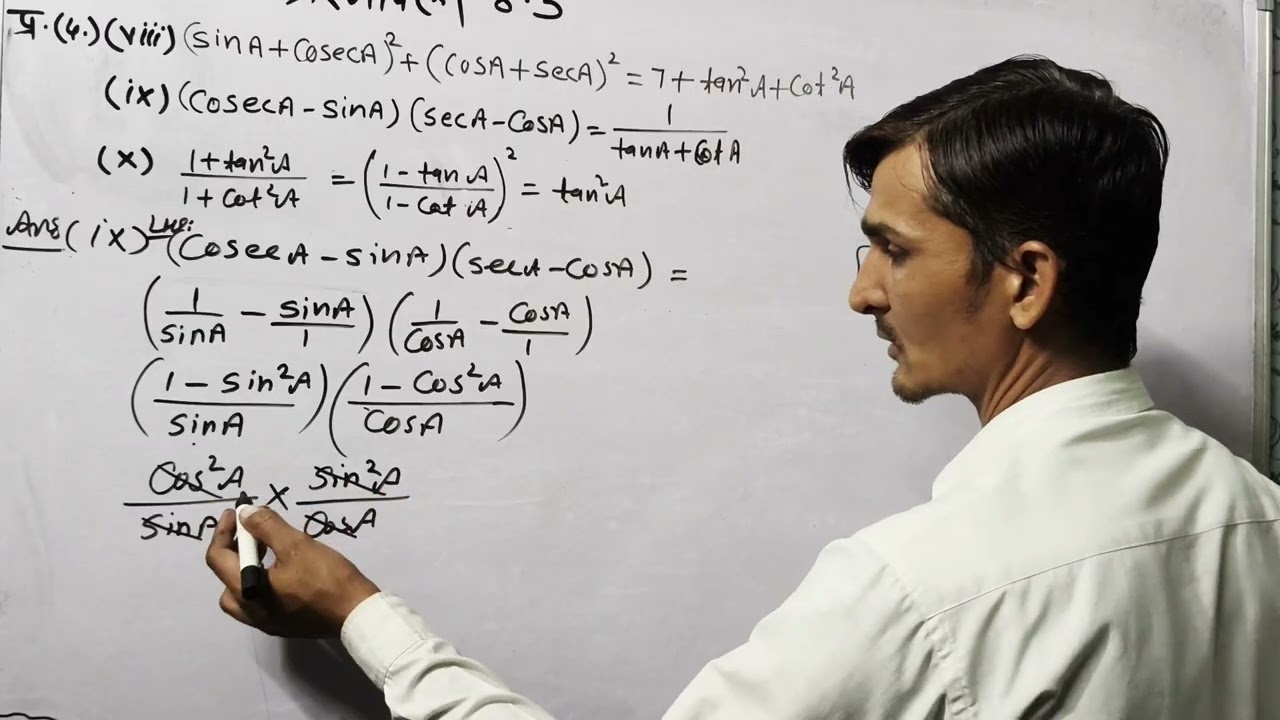 8.3
प्र.(4.)(viii) (sinA+CosecA)²+(CosA+secA)² = 7+tan²A+Cot²A
(ix) (CosecA-sinA)(secA-CosA) = 1/(tanA+CotA)
(x) (1+tan²A)/(1+Cot²A) = ((1-tanA)/(1-CotA))² = tan²A
Ans (ix) (CosecA-sinA)(secA-CosA) =
(1/sinA - sinA/1) (1/CosA - CosA/1)
((1-sin²A)/sinA) ((1-Cos²A)/CosA)
Cos²A/sinA × sin²A/CosA